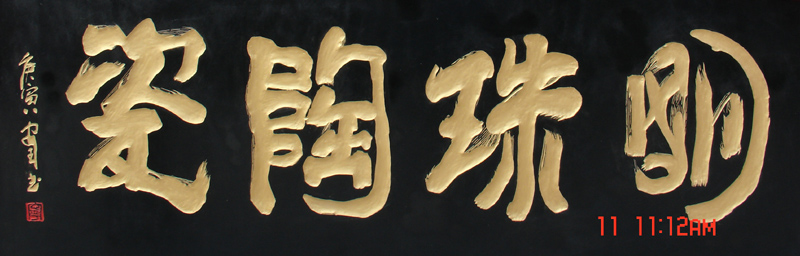 明珠陶瓷
庚寅
11 11:12AM